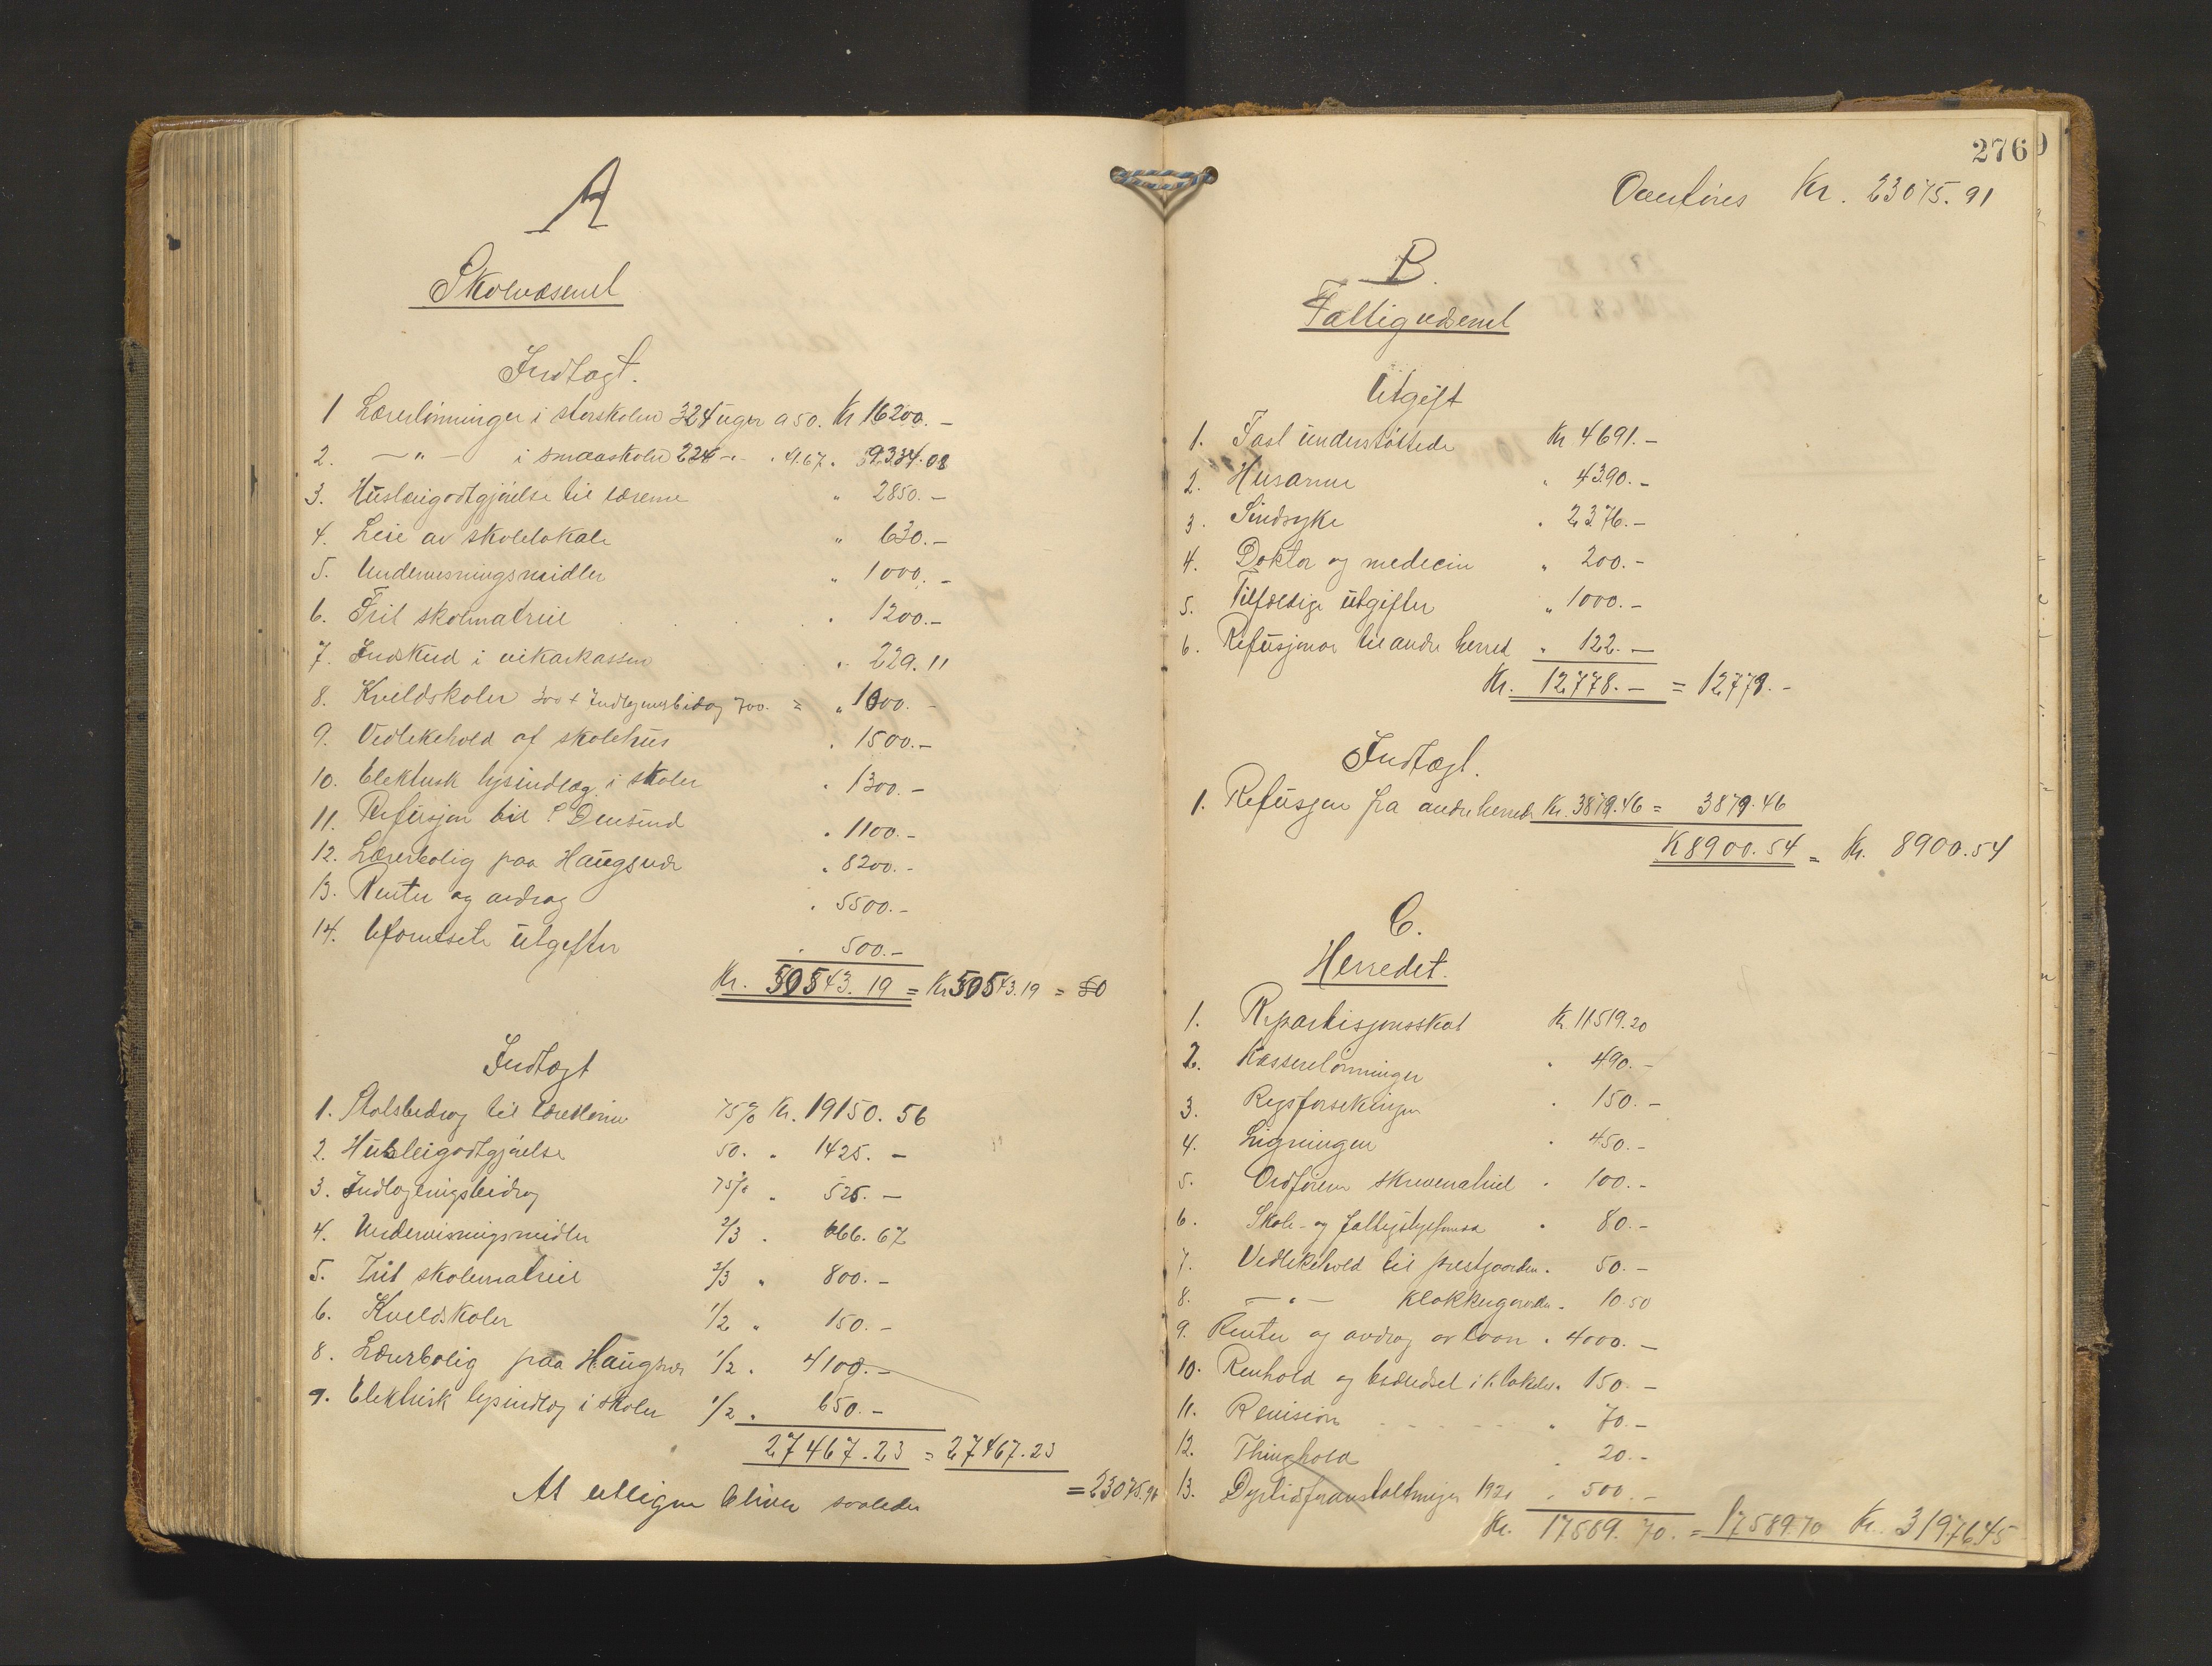 A
Skolvæsenet
Indtægt.
1 Lærerlønninger i storskolen 324 uger a 50. Kr 16200.-
2. -"- i smaaskolen 224 -"- 41.67. " 9334.08
3. Husleigodtgjørelse til lærerne " 2850.-
4. Leie av skolelokale " 630.-
5. Undervisningsmidler " 1000.-
6. Frit skolmatriel " 1200.-
7. Indskud i vikarkassen " 229.11
8. Kveldskoler 300 + Indlogeringsbidrag 700. = " 1000.-
9. Vedlikehold af skolehus " 1500.-
10. Elektrisk lysindlæg i skoler " 1300.-
11. Refusjon til 1100.-
12. Lærerbolig paa Haugsnær " 8200.-
13. Renter og avdrag " 5500.-
14. Uforutsete utgifter " 500.-
Kr. 50543.19 = Kr 50543.19 = 50
Indtægt
1. Statsbedrag til lærerlønn 75% Kr. 19150.56
2. Husleigodtgjørelse 50. " 1425.-
3. Indlogeringsbidrag 75% " 525.-
4. Undervisningsmidler 2/3 " 666.67
5. Frit skolematriel 2/3 " 800.-
6. Kveldskoler 1/2 " 150.-
8. Lærerbolig paa Haugsnær 1/2 " 4100.-
9. Elektrisk lysindlæg i skoler 1/2 " 650.-
27467.23 = 27467.23
At utligne bliver saaledes = 23075.96
276
Overføres Kr. 23075.91
B.
Fattigvæsenet
Utgift
1. Fast understøttede Kr 4691.-
2. Husarme " 4390.-
3. Sindsyke " 2376.-
4. Doktor og medecin " 200.-
5. Tilfældige utgifter " 1000.-
6. Refusjoner til andre herred " 122.-
Kr. 12778.- = 12779.-
Indtægt.
1. Refusjon fra andre herreder Kr. 3879.46 = 3879.46
K 8900.54 = Kr. 8900.54
C.
Herredet.
1. Repartisjonsskat Kr. 11519.20
2. Kasserelønninger " 490.-
3. 150.-
4. Ligningen " 450.-
5. Ordførerens skrivematriel " 100.-
6. Skole- og fattigstyreformæn " 80.-
7. Vedlikehold til prestgaarden " 50.-
8. -"- Klokkergaarden " 10.50
9. Renter og avdrag av laan " 4000.-
10. Renhold og brændsel i k. lokalet " 150.-
11. Revision " 70.-
12. Thinghold " 20.-
13. Dyrtidsforanstaltninger 1921 " 500.-
Kr. 17589.70. = 17589.70 Kr. 31976.45